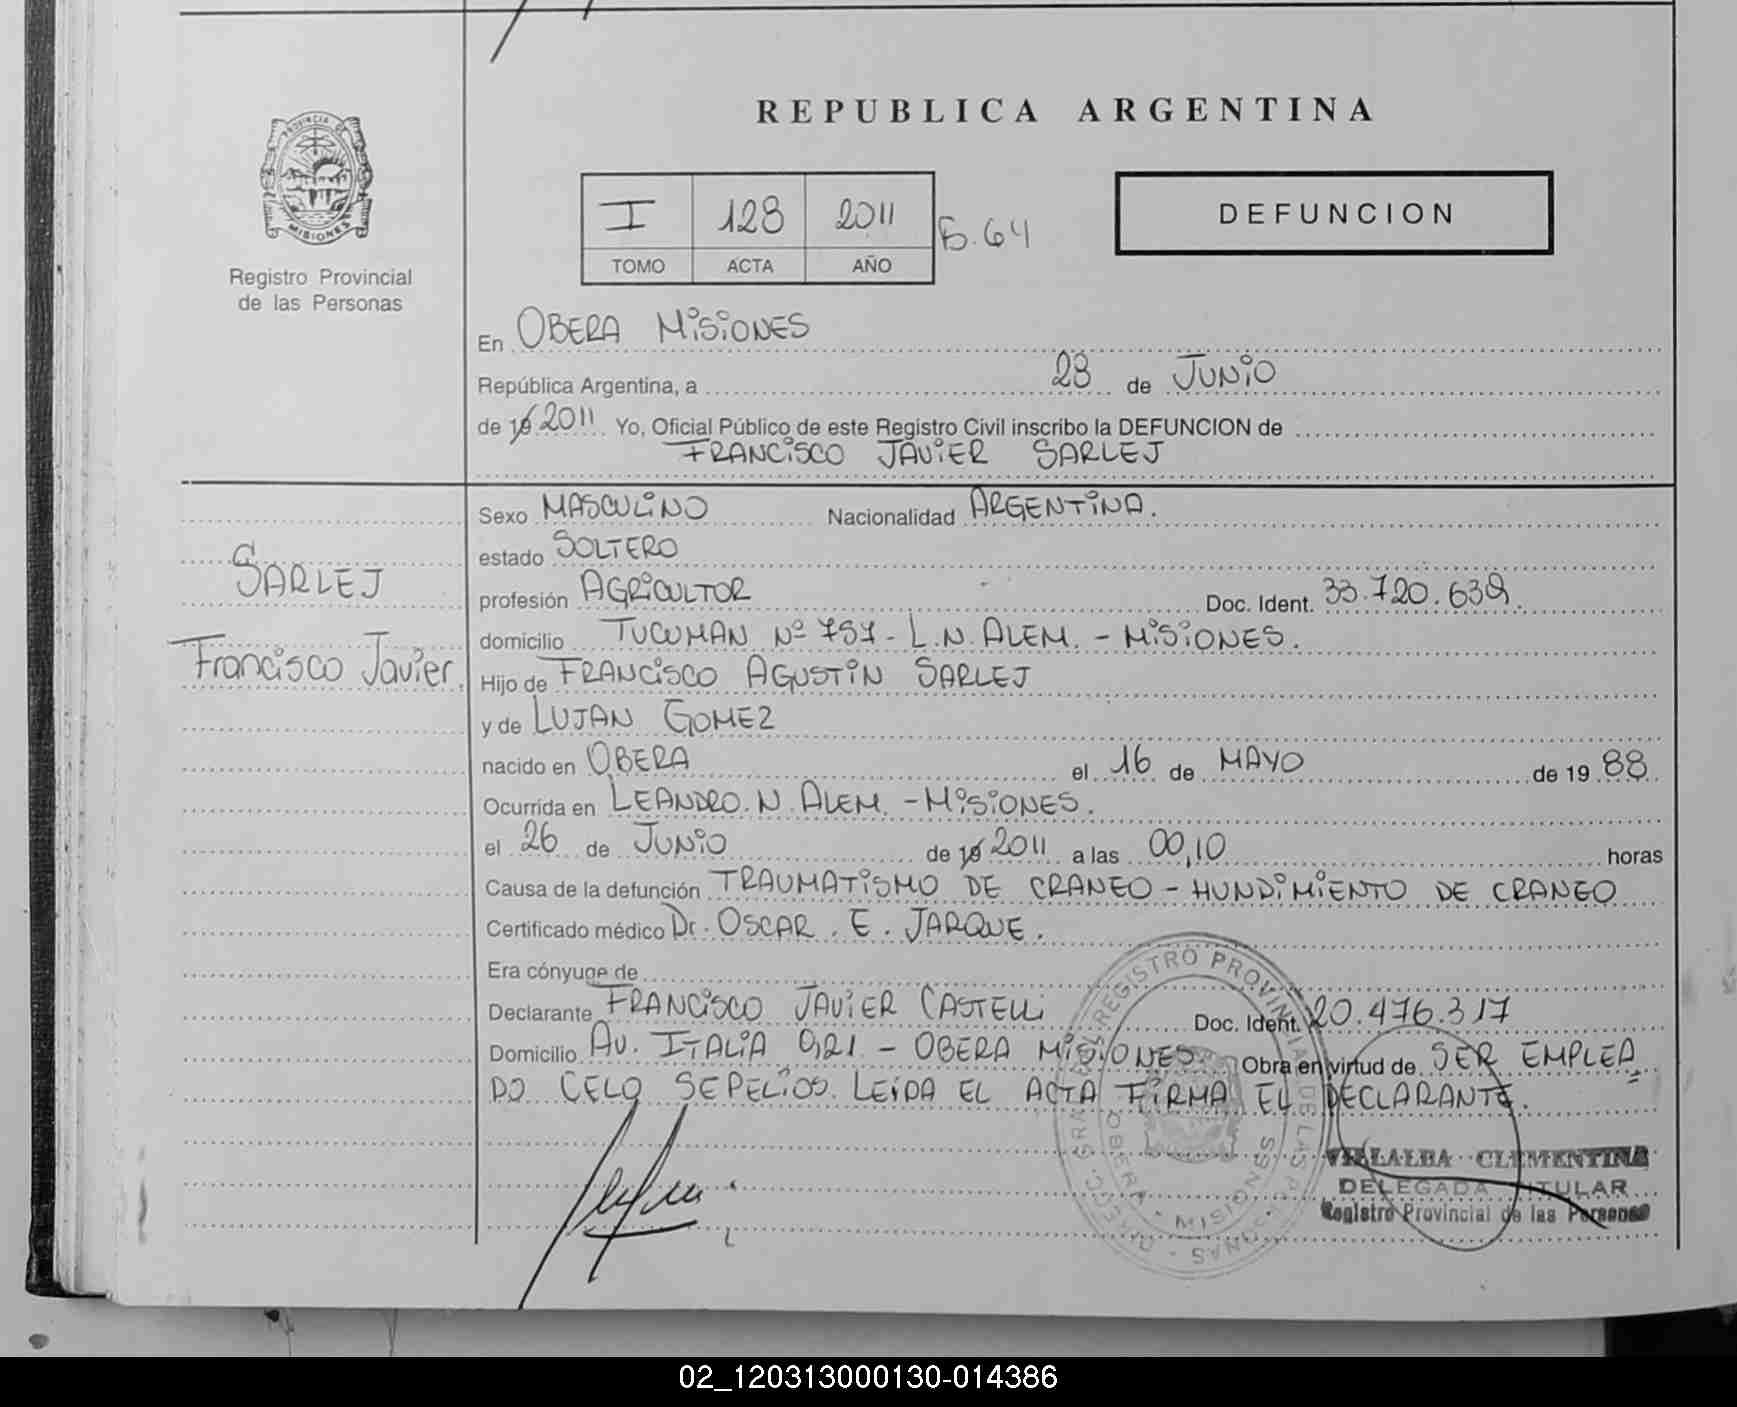 REPUBLICA ARGENTINA
PROVINCIA DE MISIONES
Registro Provincial
de las Personas
I 128 2011
TOMO ACTA AÑO
F. 64
DEFUNCION
En OBERA MISIONES
República Argentina, a 28 de JUNIO
de 19 2011 Yo, Oficial Público de este Registro Civil inscribo la DEFUNCION de
FRANCISCO JAVIER SARLEJ
SARLEJ
Francisco Javier
Sexo MASCULINO Nacionalidad ARGENTINA.
estado SOLTERO
profesión AGRICULTOR Doc. Ident. 33.720.639.
domicilio TUCUMAN Nº 757 - L.N. ALEM. - MISIONES.
Hijo de FRANCISCO AGUSTIN SARLEJ
y de LUJAN GOMEZ
nacido en OBERA el 16 de MAYO de 19 88
Ocurrida en LEANDRO. N. ALEM. - MISIONES.
el 26 de JUNIO de 19 2011 a las 00,10 horas
Causa de la defunción TRAUMATISMO DE CRANEO - HUNDIMIENTO DE CRANEO
Certificado médico Dr. OSCAR. E. JARQUE.
Era cónyuge de
Declarante FRANCISCO JAVIER CASTELLI Doc. Ident. 20.476.317
Domicilio AV. ITALIA 921 - OBERA MISIONES. Obra en virtud de SER EMPLEA
DO CELO SEPELIOS. LEIDA EL ACTA FIRMA EL DECLARANTE.
REGISTRO PROVINCIAL DE LAS PERSONAS
OBERA - MISIONES
VILLALBA CLEMENTINA
DELEGADA TITULAR
Registro Provincial de las Personas
02_120313000130-014386